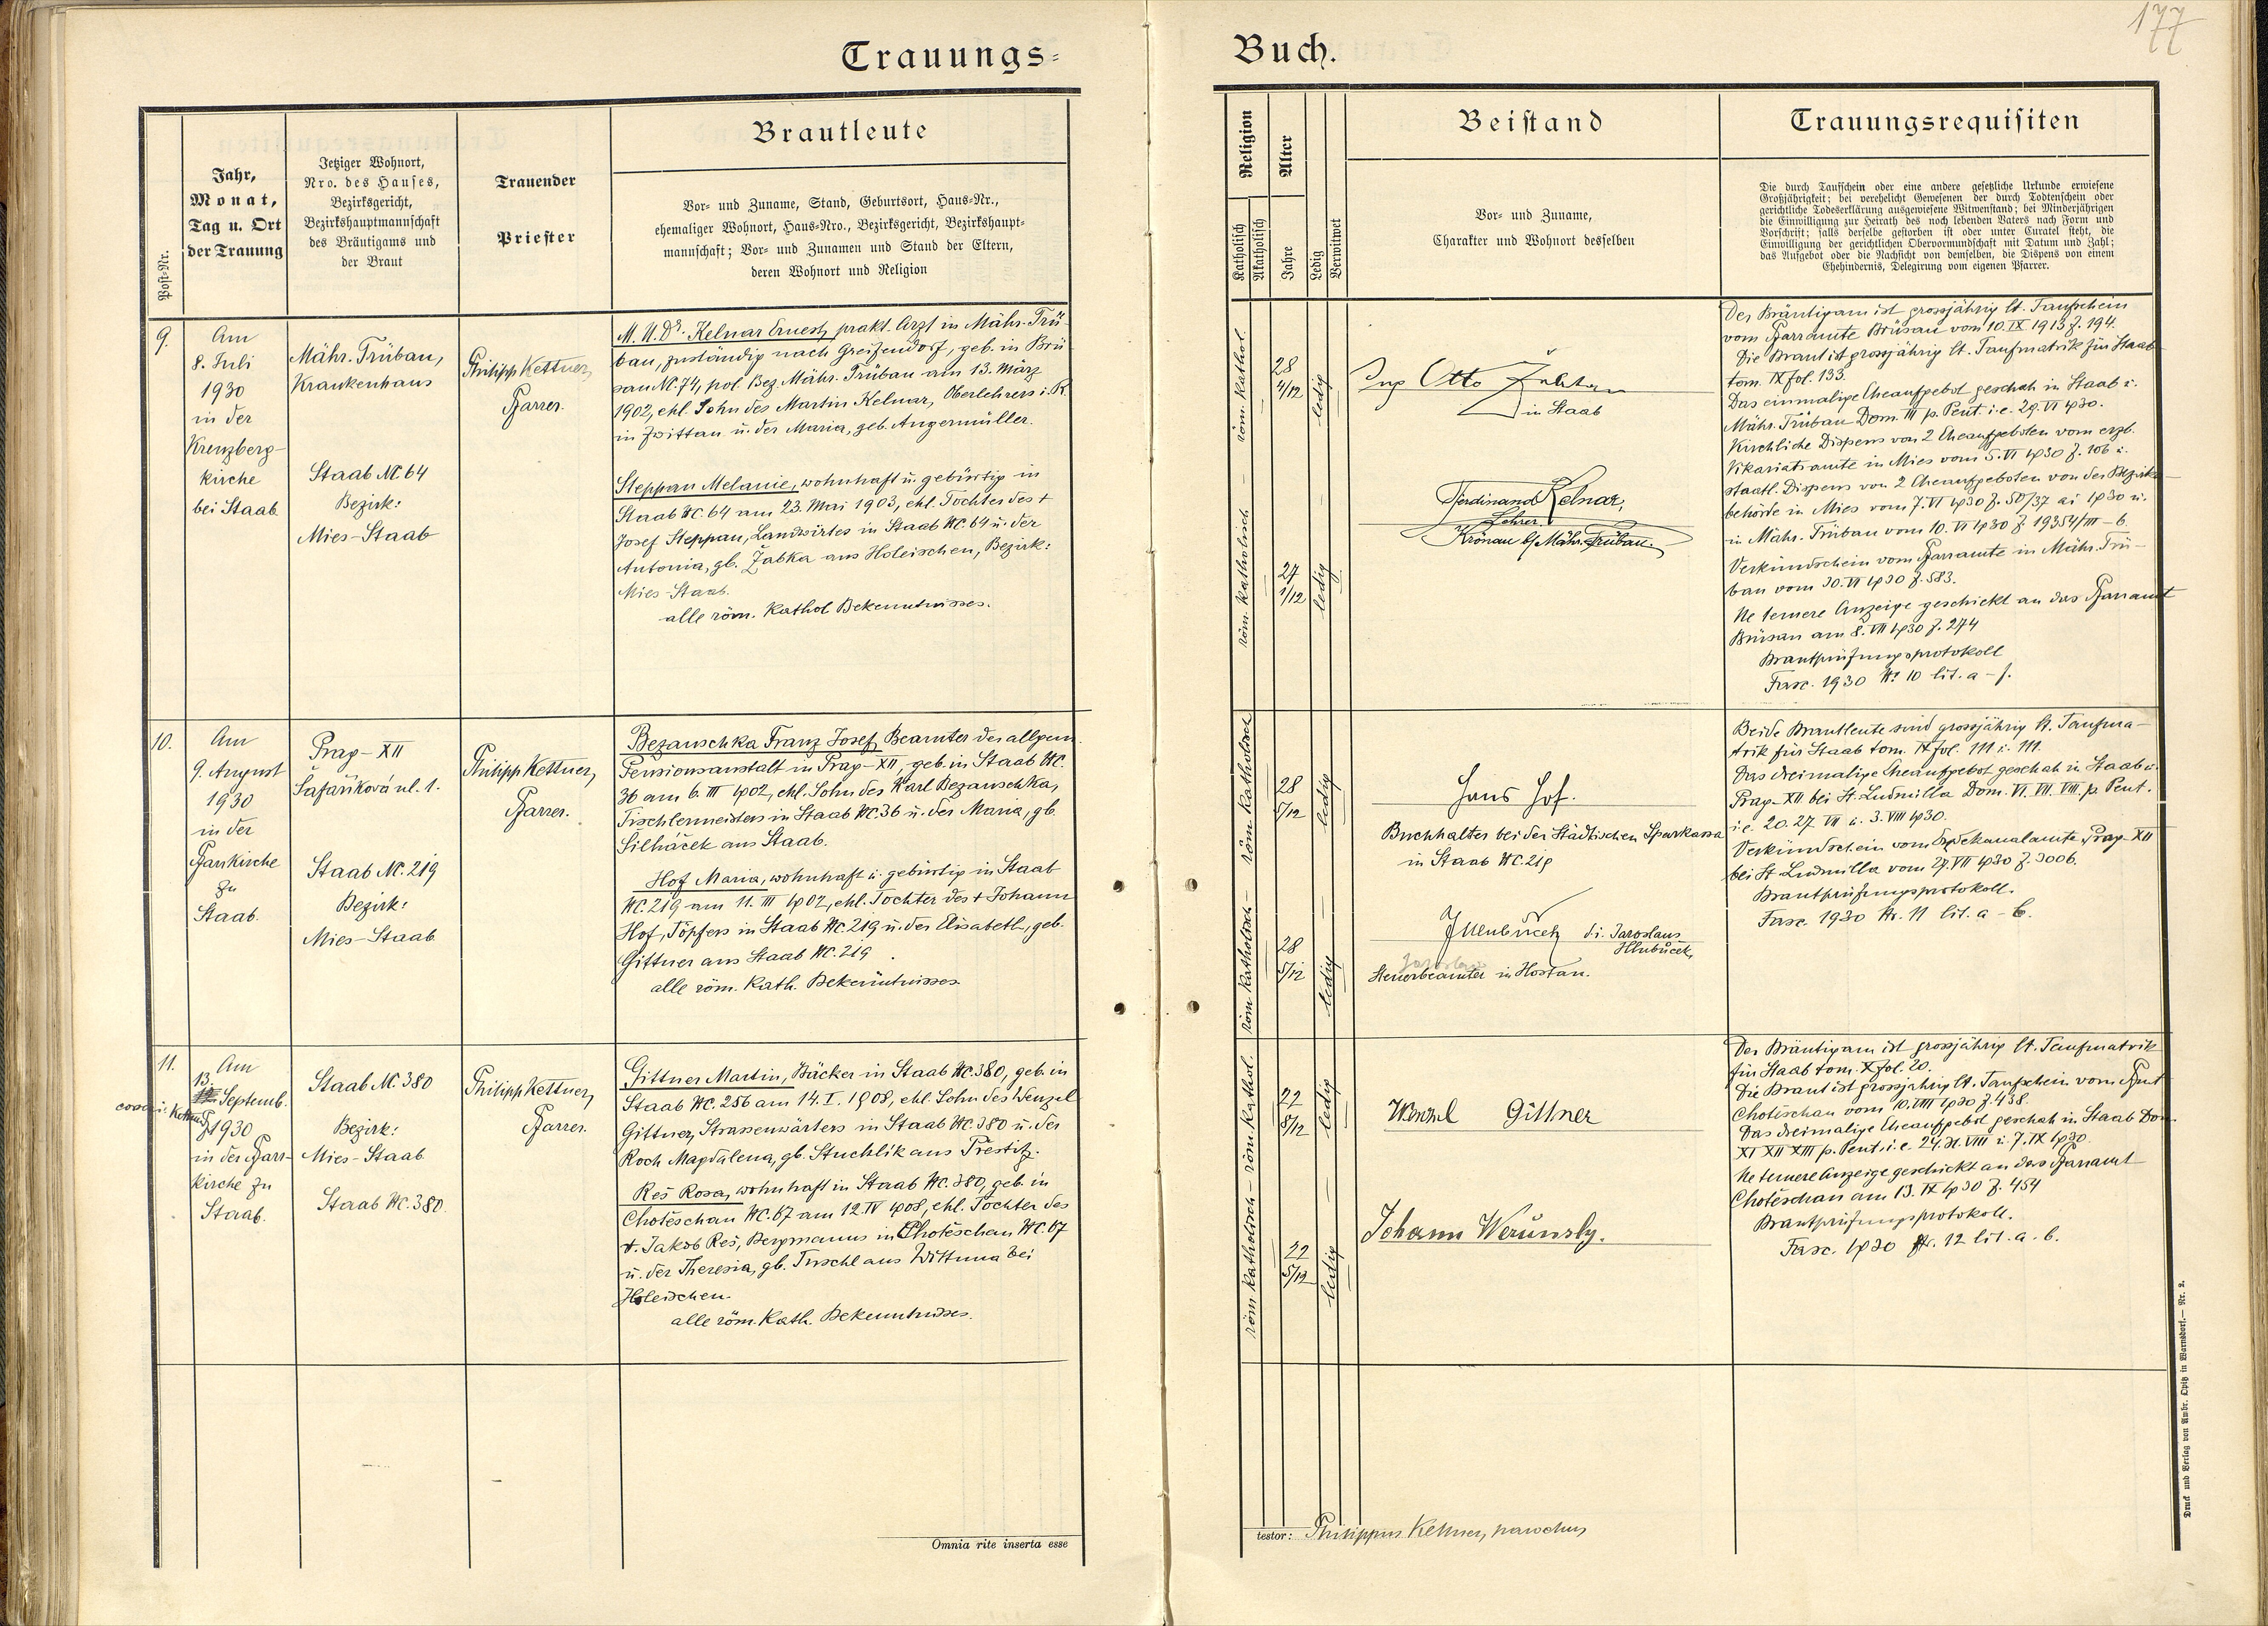 177
Trauungs-
Buch.
Post-Nr.
Jahr,
Monat,
Tag u. Ort
der Trauung
Jetziger Wohnort,
Nro. des Hauses,
Bezirksgericht,
Bezirkshauptmannschaft
des Bräutigams und
der Braut
Trauender
Priester
Brautleute
Vor- und Zuname, Stand, Geburtsort, Haus-Nr.,
ehemaliger Wohnort, Haus-Nro., Bezirksgericht, Bezirkshaupt-
mannschaft; Vor- und Zunamen und Stand der Eltern,
deren Wohnort und Religion
Religion
Katholisch
Akatholisch
Alter
Jahre
Ledig
Verwitwet
Beistand
Vor- und Zuname,
Charakter und Wohnort desselben
Trauungsrequisiten
Die durch Taufschein oder eine andere gesetzliche Urkunde erwiesene
Großjährigkeit; bei verehelicht Gewesenen der durch Todtenschein oder
gerichtliche Todeserklärung ausgewiesene Witwenstand; bei Minderjährigen
die Einwilligung zur Heirath des noch lebenden Vaters nach Form und
Vorschrift; falls derselbe gestorben ist oder unter Curatel steht, die
Einwilligung der gerichtlichen Obervormundschaft mit Datum und Zahl;
das Aufgebot oder die Nachsicht von demselben, die Dispens von einem
Ehehindernis, Delegirung vom eigenen Pfarrer.
9.
Am
8. Juli
1930
in der
Kreuzberg-
kirche
bei Staab
Mähr. Trübau,
Krankenhaus
Staab NC. 64
Bezirk:
Mies-Staab
Philipp Kettner,
Pfarrer.
M.U.Dr. Kelnar Ernest, prakt. Arzt in Mähr. Trü-
bau, zuständig nach Greifendorf, geb. in Brü-
sau NC. 74, pol. Bez. Mähr. Trübau am 13. März
1902, ehl. Sohn des Martin Kelnar, Oberlehrers i. R.
in Zwittau u. der Maria, geb. Angermüller.
Steppan Melanie, wohnhaft u. gebürtig in
Staab NC. 64 am 23. Mai 1903, ehl. Tochter des +
Josef Steppan, Landwirtes in Staab NC. 64 u. der
Antonia, gb. Žabka aus Holeischen, Bezirk:
Mies-Staab.
alle röm. kathol Bekenntnisses.
röm. katholisch — röm. kathol.
28
4/12
ledig
27
1/12
ledig
Ing Otto
in Staab
Ferdinand Kelnar,
Lehrer
Krönau b/ Mähr. Trübau.
Der Bräutigam ist grossjährig lt. Taufschein
vom Pfarramte Brüsau vom 10. IX 1913 Z. 194.
Die Braut ist grossjährig lt. Taufmatrik für Staab
tom. IX fol. 133.
Das einmalige Eheaufgebot geschah in Staab u.
Mähr. Trübau Dom. III p. Pent. i. e. 29. VI 1930.
Kirchliche Dispens von 2 Eheaufgeboten vom erzb.
Vikariatsamte in Mies vom 5. VI 1930 Z. 106 u.
staatl. Dispens von 2 Eheaufgeboten von der Bezirks-
behörde in Mies vom 7. VI 1930 Z. 50/37 ai 1930 u.
in Mähr. Trübau vom 10. VI 1930 Z. 19354/III-6.
Verkündschein vom Pfarramte in Mähr. Trü-
bau vom 30. VI 1930 Z. 583.
Ne temere Anzeige geschickt an das Pfarramt
Brüsau am 8. VII 1930 Z. 274
Brautprüfungsprotokoll
Fasc. 1930 No 10 lit. a-f.
10.
Am
9. August
1930
in der
Pfarrkirche
zu
Staab.
Prag-XII
Šafaříková ul. 1.
Staab NC. 219
Bezirk:
Mies-Staab
Philipp Kettner,
Pfarrer.
Bezauschka Franz Josef, Beamter der allgem.
Pensionsanstalt in Prag-XII, geb. in Staab NC.
36 am 6. III 1902, ehl. Sohn des Karl Bezauschka,
Tischlermeisters in Staab NC. 36 u. der Maria, gb.
Silháček aus Staab.
Hof Maria, wohnhaft u. gebürtig in Staab
NC. 219 am 11. III 1902, ehl. Tochter des + Johann
Hof, Töpfers in Staab NC. 219 u. der Elisabeth, geb.
Gittner aus Staab NC. 219
alle röm. kath. Bekenntnisses.
röm katholisch — röm katholisch
28
5/12
ledig
28
5/12
ledig
Hans Hof.
Buchhalter bei der Städtischen Sparkassa
in Staab NC. 219
JHlubuček d. i. Jaroslaus
Hlubuček,
Steuerbeamter in Hostau.
Beide Brautleute sind grossjährig lt. Taufma-
trik für Staab tom. IX fol. 111 u. 111.
Das dreimalige Eheaufgebot geschah in Staab u.
Prag-XII bei St. Ludmilla Dom. VI. VII. VIII. p. Pent.
i. e. 20. 27. VII u. 3. VIII 1930.
Verkündschein vom Erzdekanalamte Prag XII
bei St Ludmilla vom 29. VII 1930 Z. 3006.
Brautprüfungsprotokoll.
Fasc. 1930 Nr. 11 lit. a-b.
11.
Am
13.
Septemb.
1930
in der Pfarr-
kirche zu
Staab.
Staab NC. 380
Bezirk:
Mies-Staab
Staab NC. 380.
Philipp Kettner,
Pfarrer.
Gittner Martin, Bäcker in Staab NC. 380, geb. in
Staab NC. 256 am 14. I. 1908, ehl. Sohn des Wenzel
Gittner, Strassenwärters in Staab NC. 380 u. der
Roch Magdalena, gb. Stuchlik aus Prestitz.
Reš Rosa, wohnhaft in Staab NC. 380, geb. in
Chotěschau NC. 67 am 12. IV 1908, ehl. Tochter des
+. Jakob Reš, Bergmanns in Chotěschau NC. 67
u. der Theresia, gb. Tuschl aus Wittuna bei
Holeischen.
alle röm. kath. Bekenntnisses.
röm katholisch — röm kathol.
22
8/12
ledig
22
5/12
ledig
Wenzel Gittner
Johann
Der Bräutigam ist grossjährig lt. Taufmatrik
für Staab tom. X fol. 20.
Die Braut ist grossjährig lt. Taufschein vom Pfmt
Chotieschau vom 10. VIII 1930 Z. 438.
Das dreimalige Eheaufgebot geschah in Staab Dom
XI XII XIII p. Pent. i. e. 24. 31. VIII u. 7. IX 1930.
Ne temere Anzeige geschickt an das Pfarramt
Chotěschau am 13. IX 1930 Z. 454
Brautprüfungsprotokoll.
Fasc. 1930 Nr. 12 lit. a. b.
Omnia rite inserta esse
testor: Philippus Kettner, parochus
Druck und Verlag von Ambr. Opitz in Warnsdorf. — Nr. 2.